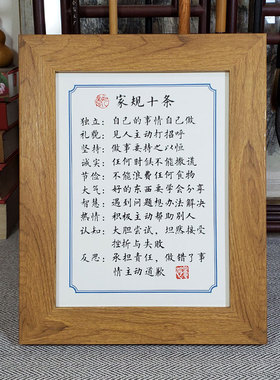 家规十条
独立：自己的事情自己做
礼貌：见人主动打招呼
坚持：做事要持之以恒
诚实：任何时候不能撒谎
节俭：不能浪费任何食物
大气：好的东西要学会分享
智慧：遇到问题想办法解决
热情：积极主动帮助别人
认知：大胆尝试，坦然接受
挫折与失败
反思：承担责任，做错了事
情主动道歉